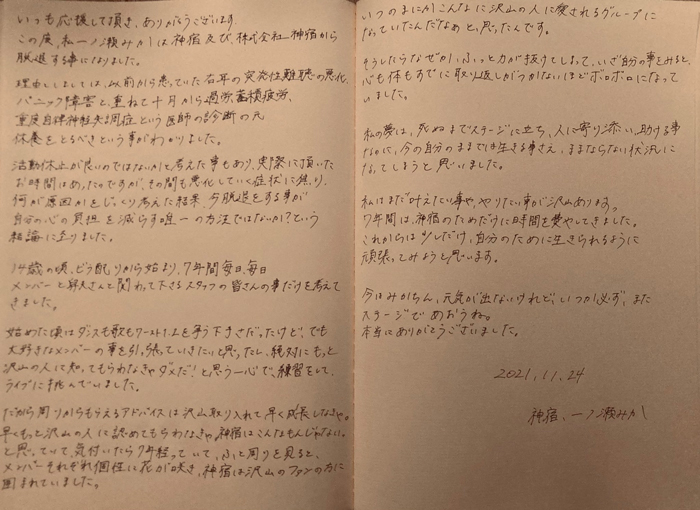 いつも応援して頂き、ありがとうございます。
この度、私一ノ瀬みかは神宿及び、株式会社神宿から
脱退する事になりました。
理由としましては、以前から患っていた右耳の突発性難聴の悪化、
パニック障害と、重ねて十月から過労、蓄積疲労、
重度自律神経失調症という医師の診断の元
休養をとるべきという事がわかりました。
活動休止が良いのではないかと考えた事もあり、実際に頂いた
お時間はあったのですが、その間も悪化していく症状に焦り、
何が原因かをじっくり考えた結果、今脱退をする事が
自分の心の負担を減らす唯一の方法ではないか?という
結論に至りました。
14歳の頃、ビラ配りから始まり、7年間毎日、毎日
メンバーと羽夫さんと関わって下さるスタッフの皆さんの事だけを考えて
きました。
始めた頃はダンスも歌もワースト1.2を争う下手さだったけど、でも
大好きなメンバーの事を引っ張っていきたいと思ったし、絶対にもっと
沢山の人に知ってもらわなきゃダメだ!と思う一心で、練習をして、
ライブに挑んでいました。
だから周りからもらえるアドバイスは沢山取り入れて早く成長しなきゃ。
早くもっと沢山の人に認めてもらわなきゃ、神宿はこんなもんじゃない。
と思っていて、気付いたら7年経っていて、ふと周りを見ると、
メンバーそれぞれ個性に花が咲き、神宿は沢山のファンの方に
囲まれていました。
いつのまにかこんなに沢山の人に愛されるグループに
なっていたんだなぁ、と思ったんです。
そうしたらなぜか、ふっと力が抜けてしまって、いざ自分の事をみると、
心も体もすでに取り返しがつかないほどボロボロになって
いました。
私の夢は、死ぬまでステージに立ち、人に寄り添い、助ける事
なのに、今の自分のままでは生きる事さえ、ままならない状況に
なってしまうと思いました。
私はまだ叶えたい事や、やりたい事が沢山あります。
7年間は、神宿のためだけに時間を費やしてきました。
これからは少しだけ、自分のために生きられるように
頑張ってみようと思います。
今はみかちん、元気が出ないけれど、いつか必ず、また
ステージであおうね。
本当にありがとうございました。
2021.11.24
神宿、一ノ瀬みか